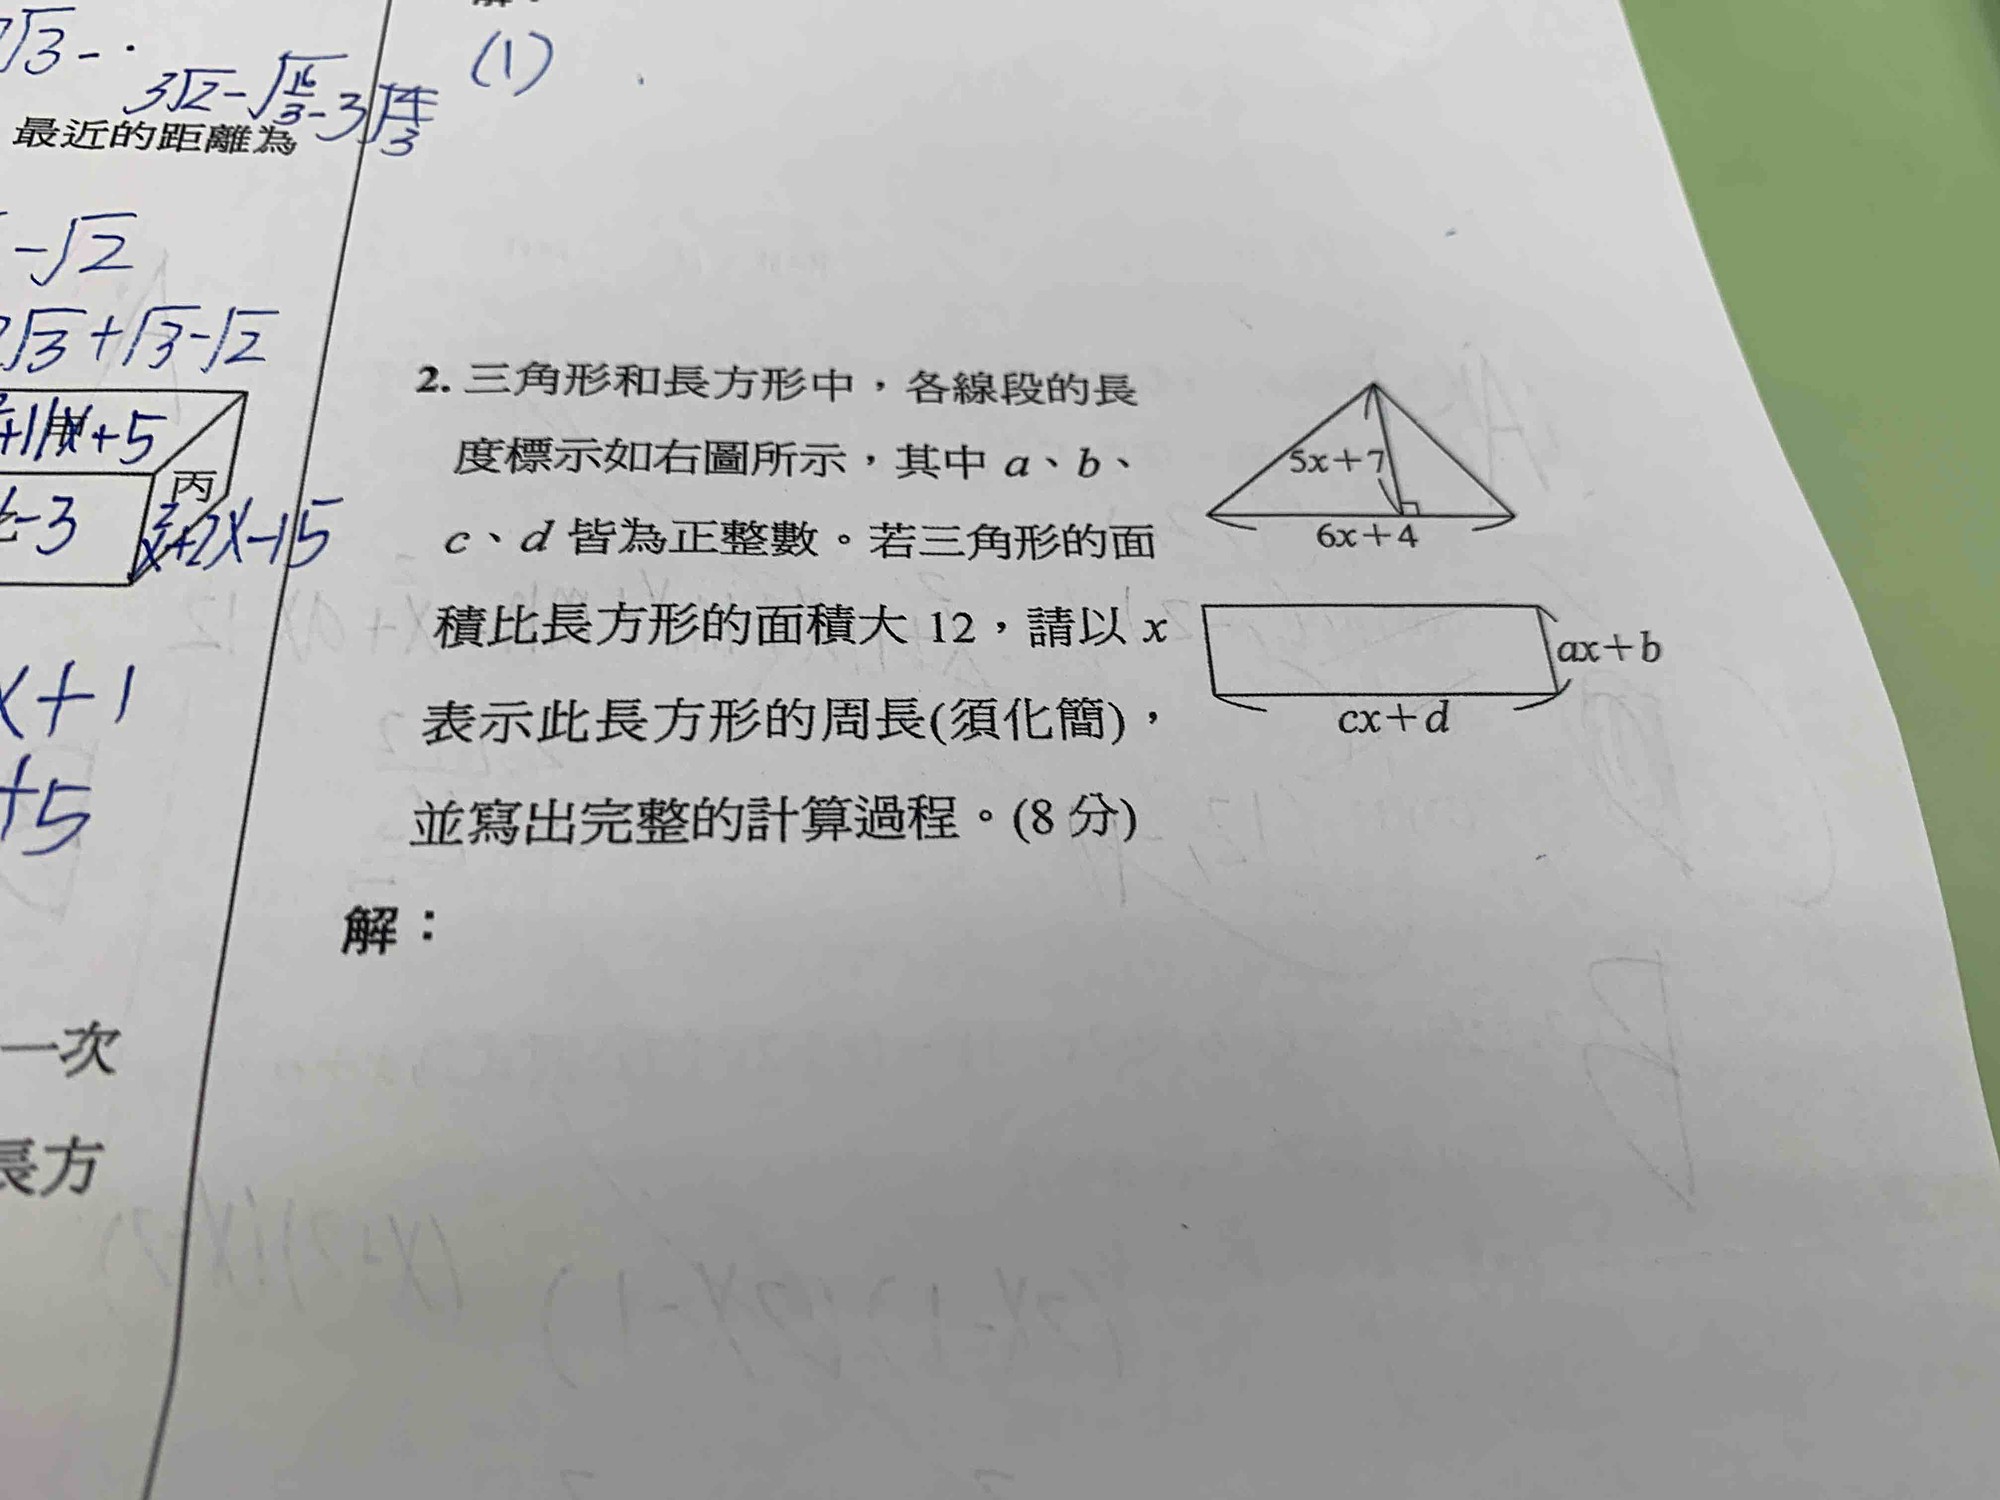 √3 - .
3√2 - √16/3 - 3√4/3
最近的距離為
-√2
√3+√3-√2
+11x+5
丙
-3
x²+2x-15
x+1
+5
一次
長方
(1)
2. 三角形和長方形中，各線段的長
度標示如右圖所示，其中 a、b、
c、d 皆為正整數。若三角形的面
積比長方形的面積大 12，請以 x
表示此長方形的周長(須化簡)，
並寫出完整的計算過程。(8 分)
5x+7
6x+4
ax+b
cx+d
解：